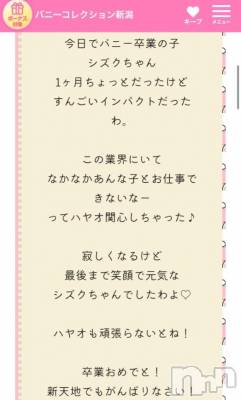 ボーナス
バニーコレクション新潟
キープ
メニュー
今日でバニー卒業の子
シズクちゃん
1ヶ月ちょっとだったけど
すんごいインパクトだった
わ。
この業界にいて
なかなかあんな子とお仕事で
きないなー
ってハヤオ関心しちゃった♪
寂しくなるけど
最後まで笑顔で元気な
シズクちゃんでしたわよ♡
ハヤオも頑張らないとね！
卒業おめでと！
新天地でもがんばりなさい！